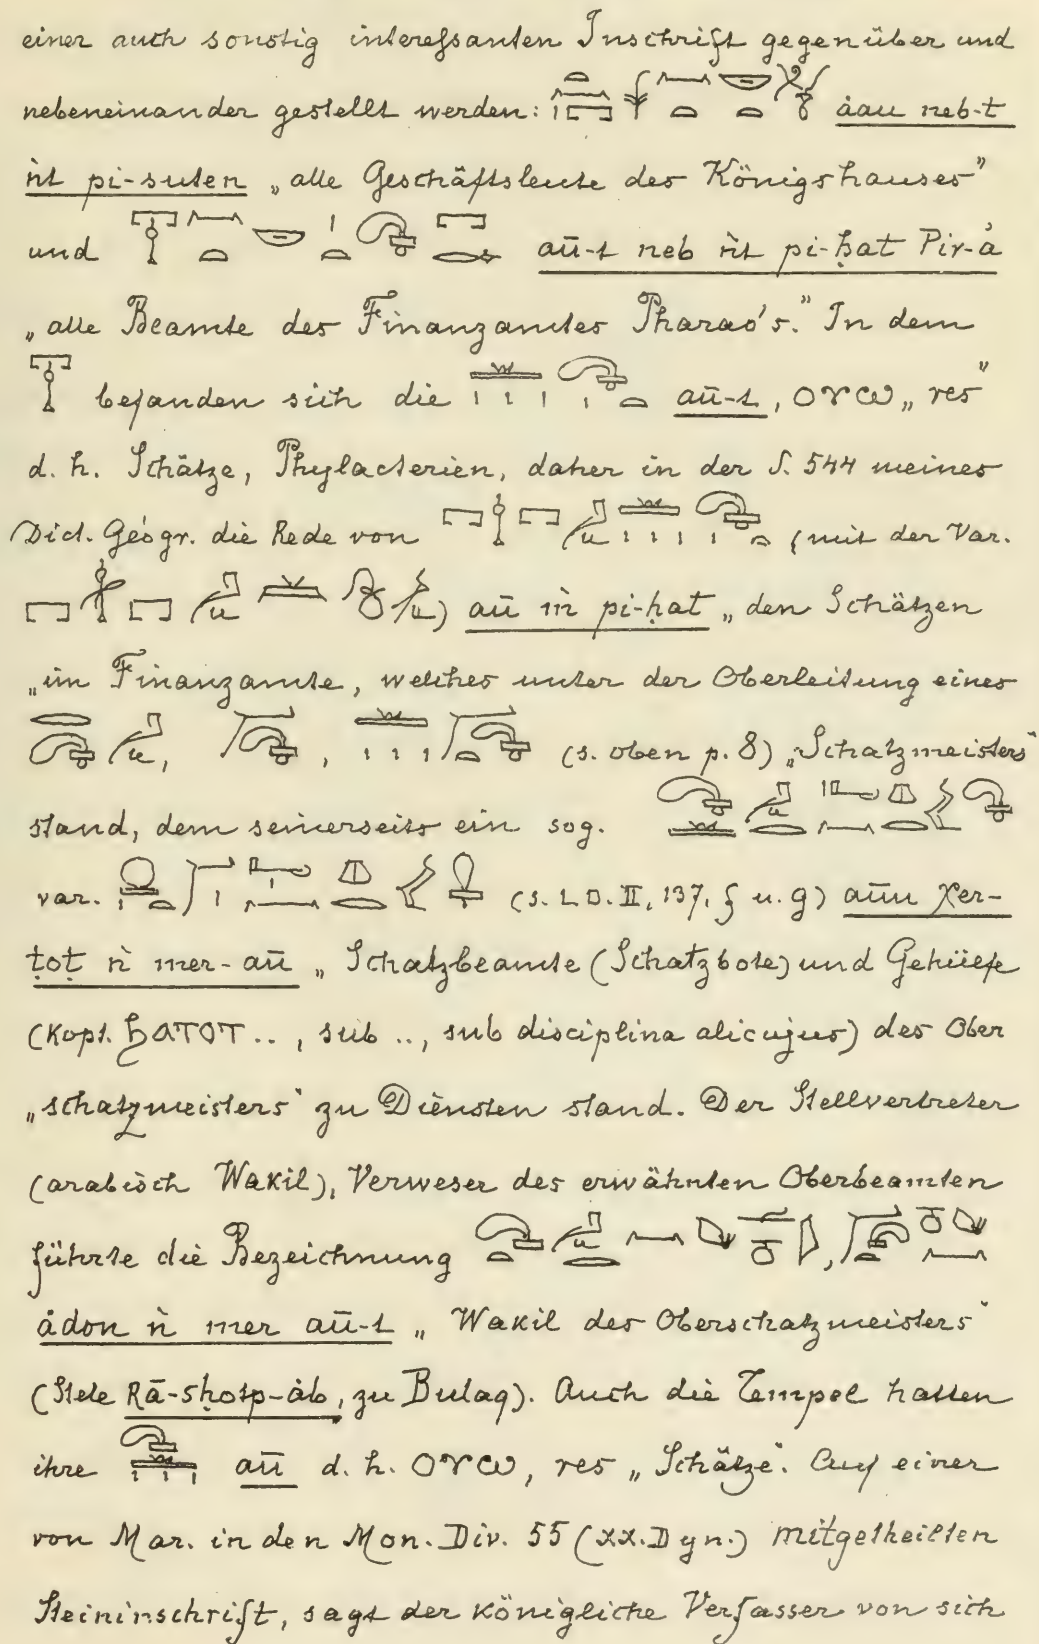 einer auch sonstig interessanten Inschrift gegenüber und
nebeneinander gestellt werden: áau neb-t
ńt pi-suten „alle Geschäftsleute des Königshauses”
und aū-t neb ńt pi-ḥat Pir-á
„alle Beamte des Finanzamtes Pharao's.” In dem
befanden sich die aū-t, ⲟⲩⲱ „res”
d. h. Schätze, Phylacterien, daher in der S. 544 meines
Dict. Géogr. die Rede von (mit der Var.
) aū m pi-ḥat „den Schätzen
„im Finanzamte, welches unter der Oberleitung eines
, , (s. oben p. 8) „Schatzmeisters”
stand, dem seinerseits ein sog.
var. (s. LD. II, 137, f u. g) aūu χer-
ṭoṭ ń mer-aū „Schatzbeamte (Schatzbote) und Gehülfe
(Kopt. ϧⲁⲧⲟⲧ .., sub .., sub disciplina alicujus) des Ober
„schatzmeisters” zu Diensten stand. Der Stellvertreter
(arabisch Wakil), Verweser des erwähnten Oberbeamten
führte die Bezeichnung ,
ádon ń mer aū-t „Wakil des Oberschatzmeisters”
(Stele Rā-sḥotp-áb, zu Bulaq). Auch die Tempel hatten
ihre aū d. h. ⲟⲩⲱ, res „Schätze”. Auf einer
von Mar. in den Mon. Div. 55 (XX. Dyn.) mitgetheilten
Steininschrift, sagt der königliche Verfasser von sich